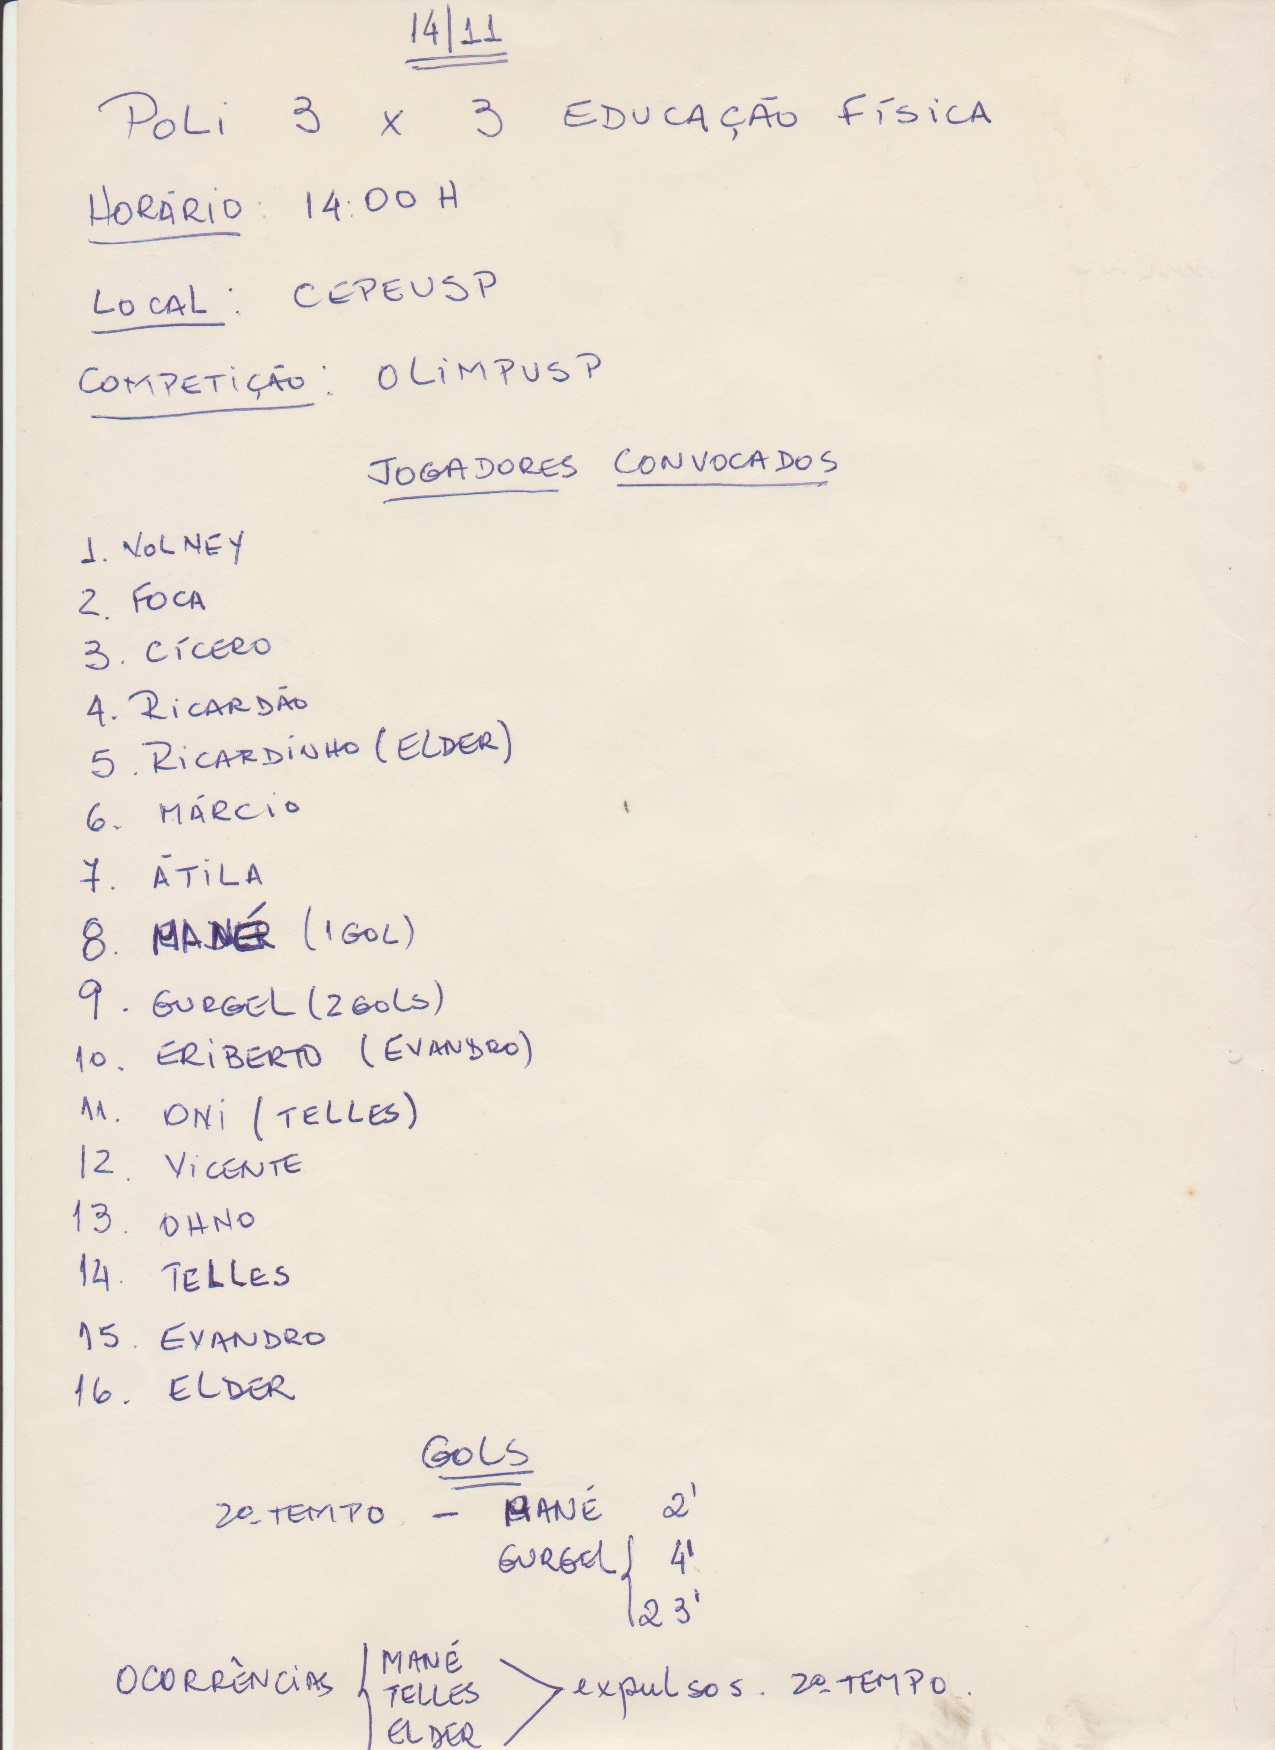 14/11
POLI 3 X 3 EDUCAÇÃO FÍSICA
HORÁRIO: 14:00 H
LOCAL: CEPEUSP
COMPETIÇÃO: OLIMPUSP
JOGADORES CONVOCADOS
1. VOLNEY
2. FOCA
3. CÍCERO
4. RICARDÃO
5. RICARDINHO (ELDER)
6. MÁRCIO
7. ÁTILA
8. MANÉ (1 GOL)
9. GURGEL (2 GOLS)
10. ERIBERTO (EVANDRO)
11. ONI (TELLES)
12. VICENTE
13. OHNO
14. TELLES
15. EVANDRO
16. ELDER
GOLS
2º TEMPO - MANÉ 2'
GURGEL { 4'
23'
OCORRÊNCIAS { MANÉ
TELLES > expulsos. 2º TEMPO.
ELDER